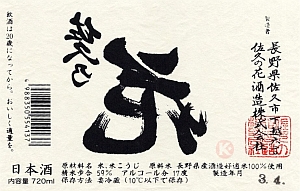 製造者
長野県佐久市下越
佐久の花酒造株式会社
花
飲酒は20歳になってから。おいしく適量を。
日本酒
内容量 720ml
原材料名 米、米こうじ 原料米 長野県産酒造好適米100%使用
精米歩合 59% アルコール分 17度 製造年月
保存方法 要冷蔵(10℃以下で保存)
3.4.